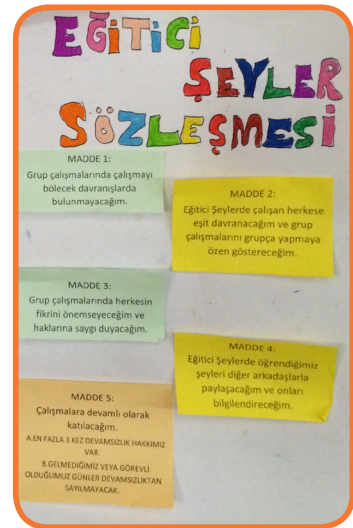 EĞİTİCİ
ŞEYLER
SÖZLEŞMESİ
MADDE 1:
Grup çalışmalarında çalışmayı
bölecek davranışlarda
bulunmayacağım.
MADDE 2:
Eğitici Şeylerde çalışan herkese
eşit davranacağım ve grup
çalışmalarını grupça yapmaya
özen göstereceğim.
MADDE 3:
Grup çalışmalarında herkesin
fikrini önemseyeceğim ve
haklarına saygı duyacağım.
MADDE 4:
Eğitici Şeylerde öğrendiğimiz
şeyleri diğer arkadaşlarla
paylaşacağım ve onları
bilgilendireceğim.
MADDE 5:
Çalışmalara devamlı olarak
katılacağım.
A.EN FAZLA 3 KEZ DEVAMSIZLIK HAKKIMIZ
VAR.
B.GELMEDİĞİMİZ VEYA GÖREVLİ
OLDUĞUMUZ GÜNLER DEVAMSIZLIKTAN
SAYILMAYACAK.